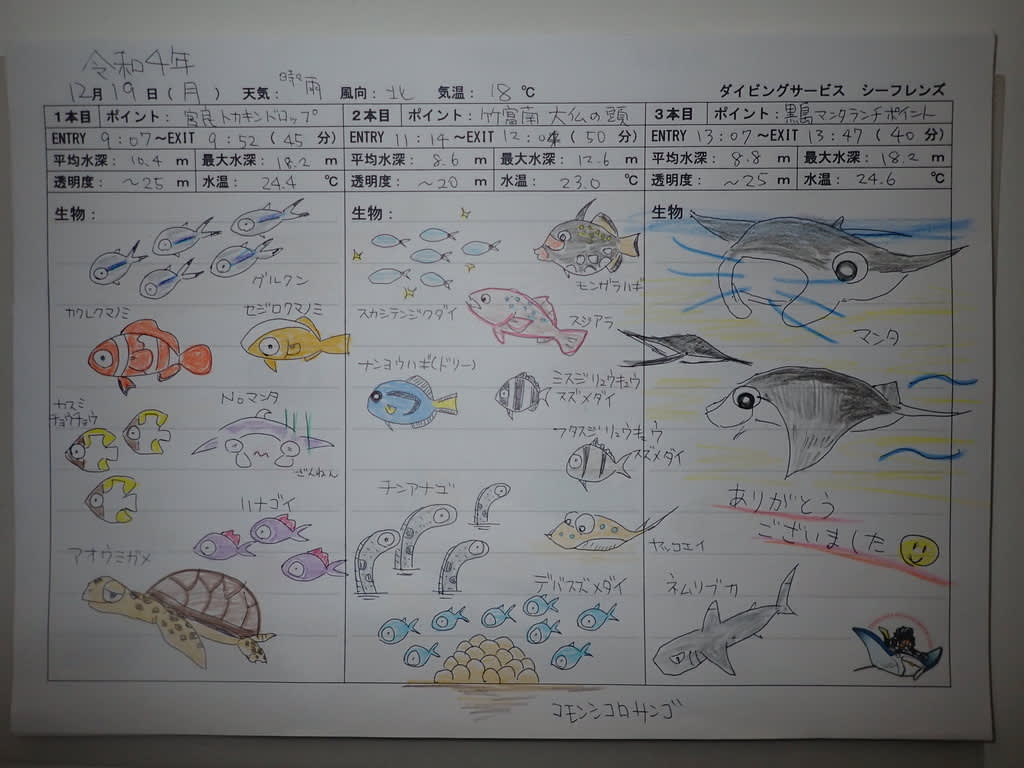 令和4年
12月19日(月) 天気: 時々雨 風向: 北 気温: 18℃ ダイビングサービス シーフレンズ
1本目 ポイント: 宮良トカキンドロップ
ENTRY 9:07〜EXIT 9:52 (45分)
平均水深: 10.4 m 最大水深: 18.2 m
透明度: 〜25 m 水温: 24.4 ℃
生物:
グルクン
カクレクマノミ セジロクマノミ
ヤスミ
チョウチョウ
Noマンタ
ざんねん
ハナゴイ
アオウミガメ
2本目 ポイント: 竹富南 大仏の頭
ENTRY 11:14〜EXIT 12:04 (50分)
平均水深: 8.6 m 最大水深: 12.6 m
透明度: 〜20 m 水温: 23.0 ℃
生物:
モンガラハギ
スカシテンジクダイ
スジアラ
ナンヨウハギ(ドリー)
ミスジリュウキュウ
スズメダイ
フタスジリュウキュウ
スズメダイ
チンアナゴ
ヤッコエイ
デバスズメダイ
コモンシコロサンゴ
3本目 ポイント: 黒島マンタランチポイント
ENTRY 13:07〜EXIT 13:47 (40分)
平均水深: 8.8 m 最大水深: 18.2 m
透明度: 〜25 m 水温: 24.6 ℃
生物
マンタ
ありがとう
ございました
ネムリブカ